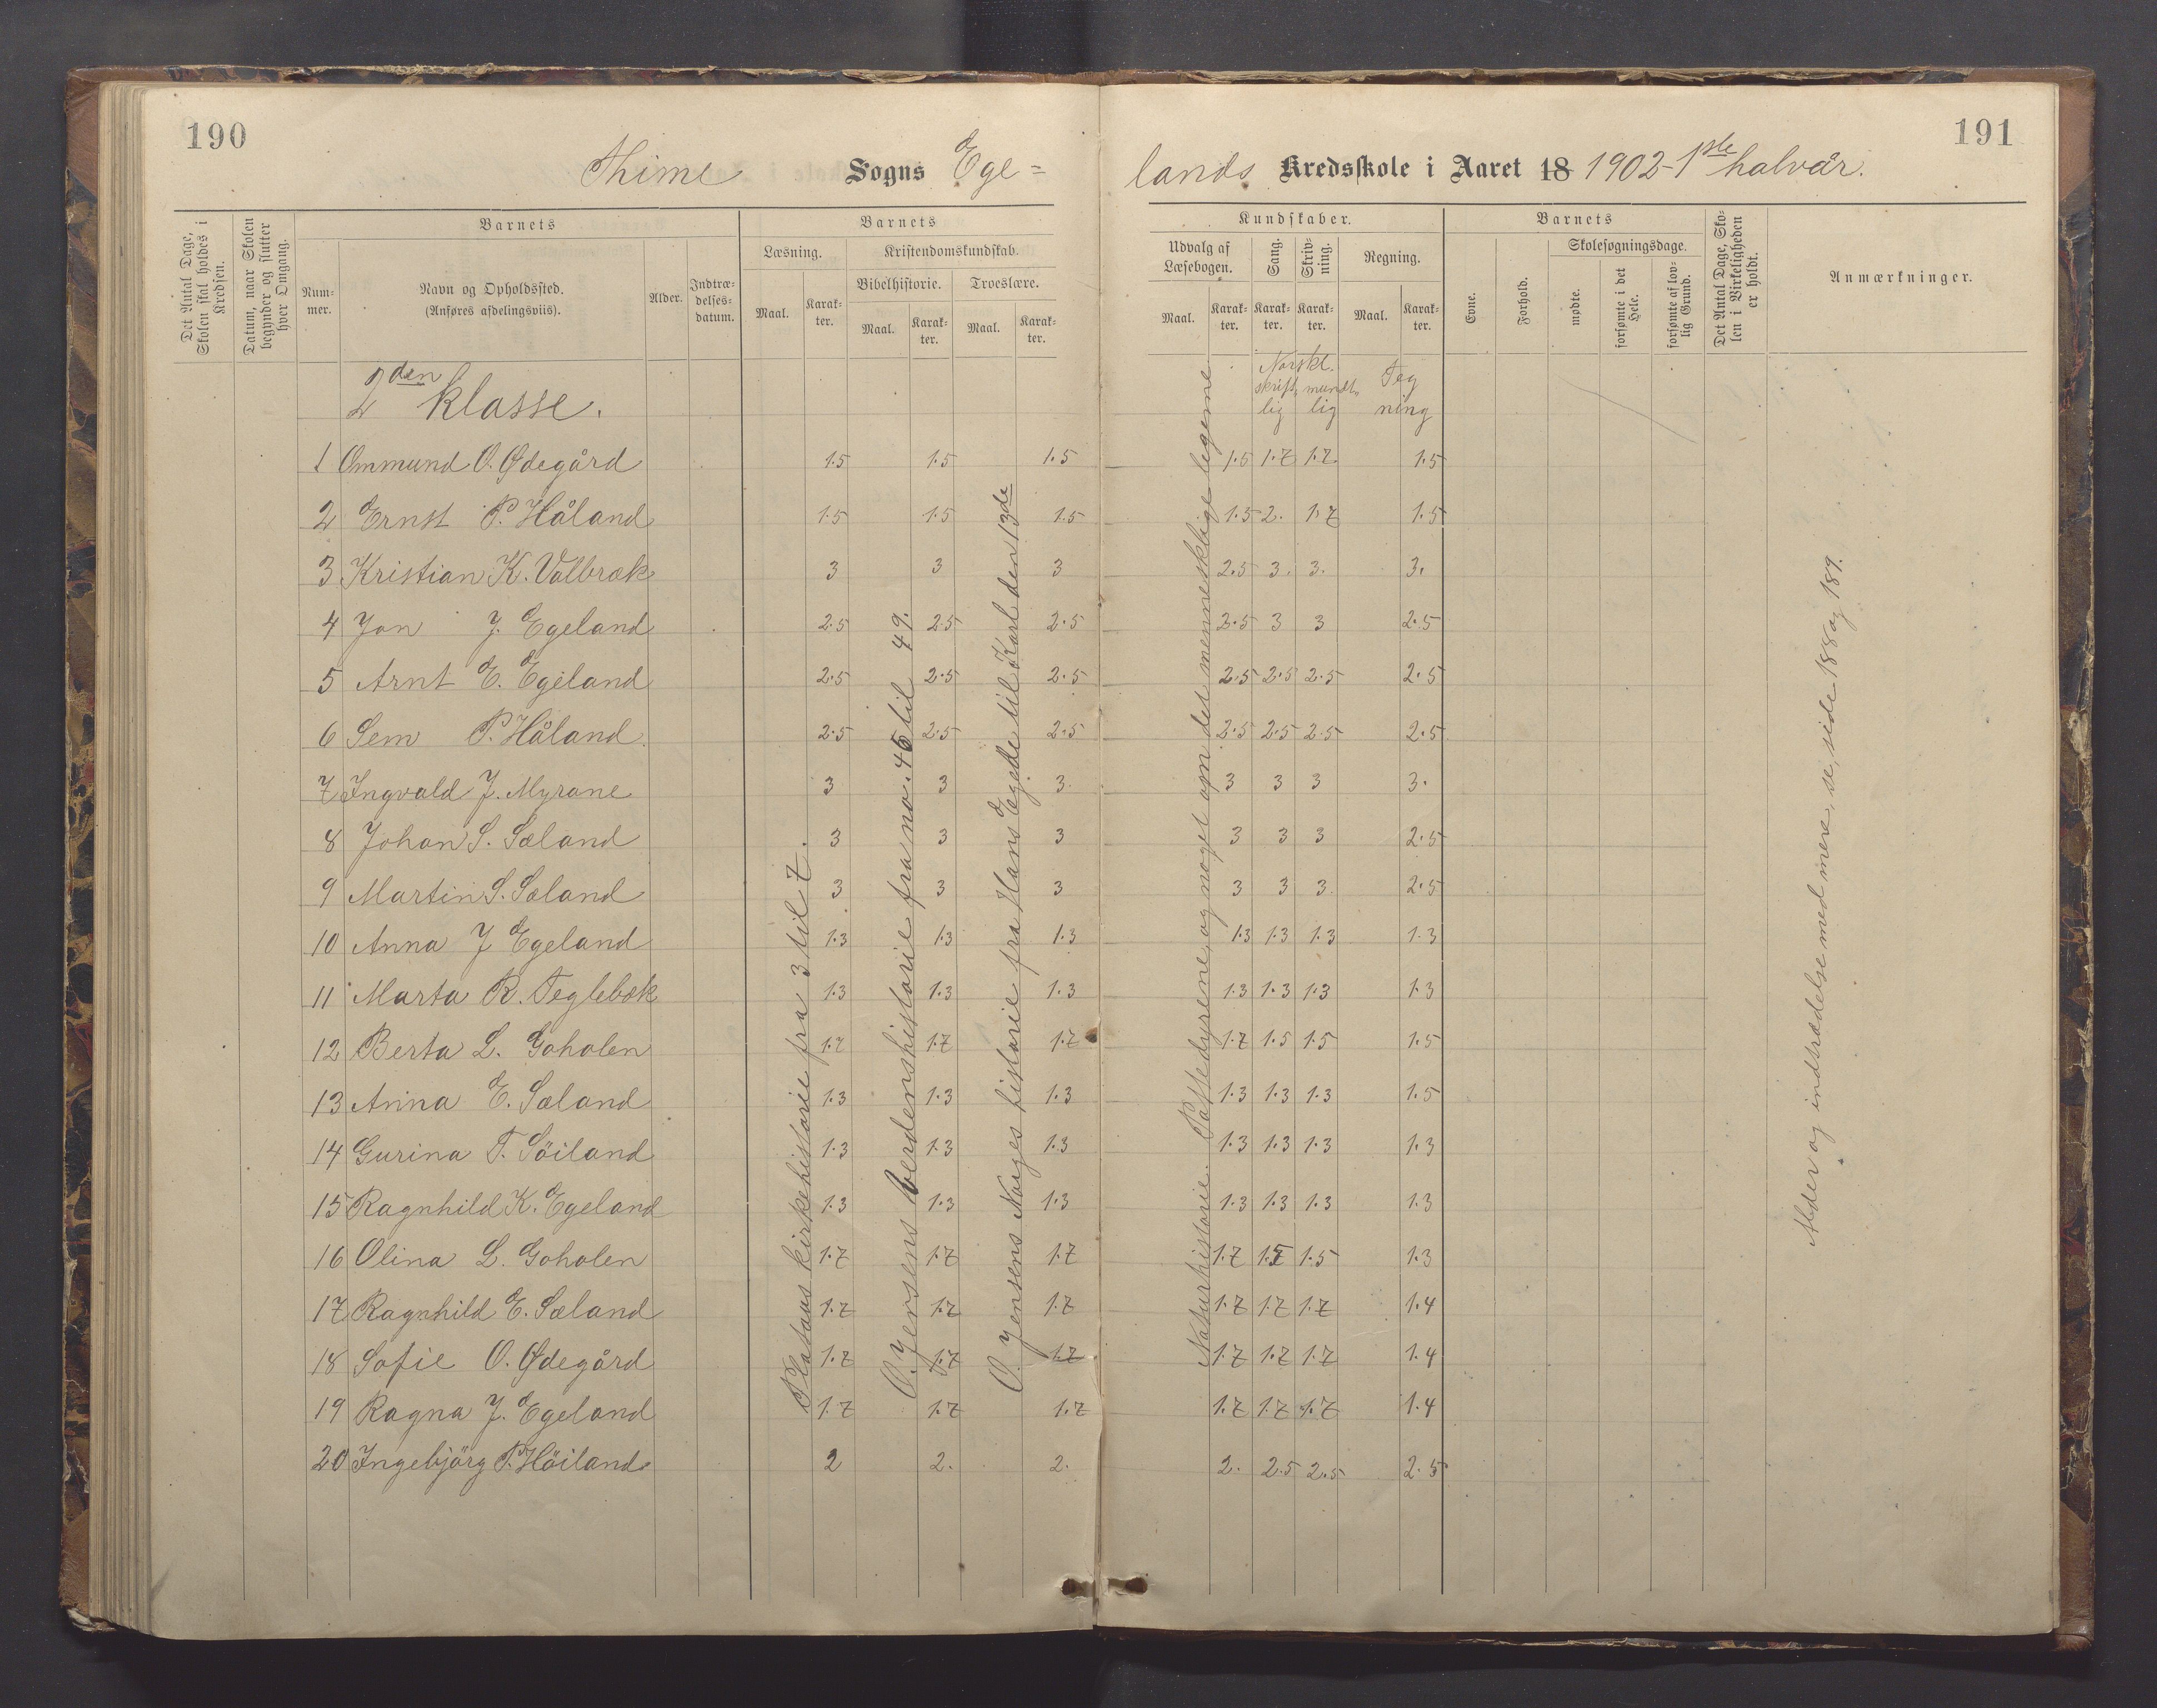 190
191
Thime Sogns Ege=
lands Kredsskole i Aaret 18 1902 - 1ste halvår.
Det Antal Dage, Skolen skal holdes i Kredsen.
Datum, naar Skolen begynder og slutter hver Omgang.
Barnets
Num-mer.
Navn og Opholdssted.
(Anføres afdelingsviis).
Alder.
Indtræ-delses-datum.
Barnets
Læsning.
Kristendomskundskab.
Bibelhistorie.
Troeslære.
Maal.
Karak-ter.
Maal.
Karak-ter.
Maal.
Karak-ter.
Kundskaber.
Udvalg af Læsebogen.
Sang.
Skriv-ning.
Regning.
Maal.
Karak-ter.
Karak-ter.
Karak-ter.
Maal.
Karak-ter.
Barnets
Evne.
Forhold.
Skolesøgningsdage.
mødte.
forsømte i det Hele.
forsømte af lov-lig Grund.
Det Antal Dage, Sko-len i Virkeligheden er holdt.
Anmærkninger.
2den klasse.
Norsk.
skrift- mundt-
lig lig
Teg
ning
1 Ommund O. Ødegård 1.5 1.5 1.5 1.5 1.7 1.7 1.5
2 Ernst P. Håland 1.5 1.5 1.5 1.5 2. 1.7 1.5
3 Kristian K. Valbræk 3 3 3 2.5 3. 3. 3.
4 Jon J. Egeland 2.5 2.5 2.5 2.5 3 3 2.5
5 Arnt E. Egeland 2.5 2.5 2.5 2.5 2.5 2.5 2.5
6 Sem P. Håland 2.5 2.5 2.5 2.5 2.5 2.5 2.5
7 Ingvald J. Myrane 3 3 3. 3 3 3 3.
8 Johan S. Sæland 3 3 3 3 3 3 2.5
9 Martin S. Sæland 3 3 3 3 3 3. 2.5
10 Anna J Egeland 1.3 1.3 1.3 1.3 1.3 1.3 1.3
11 Marta R. Teglebæk 1.3 1.3 1.3 1.3 1.3 1.3 1.3
12 Berta L. Goholen 1.7 1.7 1.7 1.7 1.5 1.5 1.5
13 Anna E. Sæland 1.3 1.3 1.3 1.3 1.3 1.3 1.5
14 Gurina T. Söiland 1.3 1.3 1.3 1.3 1.3 1.3 1.3
15 Ragnhild K. Egeland 1.3 1.3 1.3 1.3 1.3 1.3 1.3
16 Olina L. Goholen 1.7 1.7 1.7 1.7 1.5 1.5 1.3
17 Ragnhild E. Sæland 1.7 1.7 1.7 1.7 1.7 1.7 1.4
18 Sofie O. Ødegård 1.7 1.7 1.7 1.7 1.7 1.7 1.4
19 Ragna J. Egeland 1.7 1.7 1.7 1.7 1.7 1.7 1.4
20 Ingebjörg P. Höiland 2 2. 2. 2. 2.5 2.5 2.5
kirkehistorie fra 3 til 7.
O. Jensens verdenshistorie fra no. 45 til 49.
O. Jensens Norges historie fra Hans Egede til Karl den 13de
Naturhistorie. Pattedyrene, og noget om det menneskelige legeme
Alder og indtrædelse med mere, se, side 188 og 189.